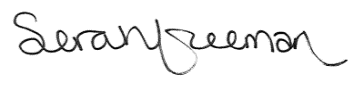 Serah Freeman